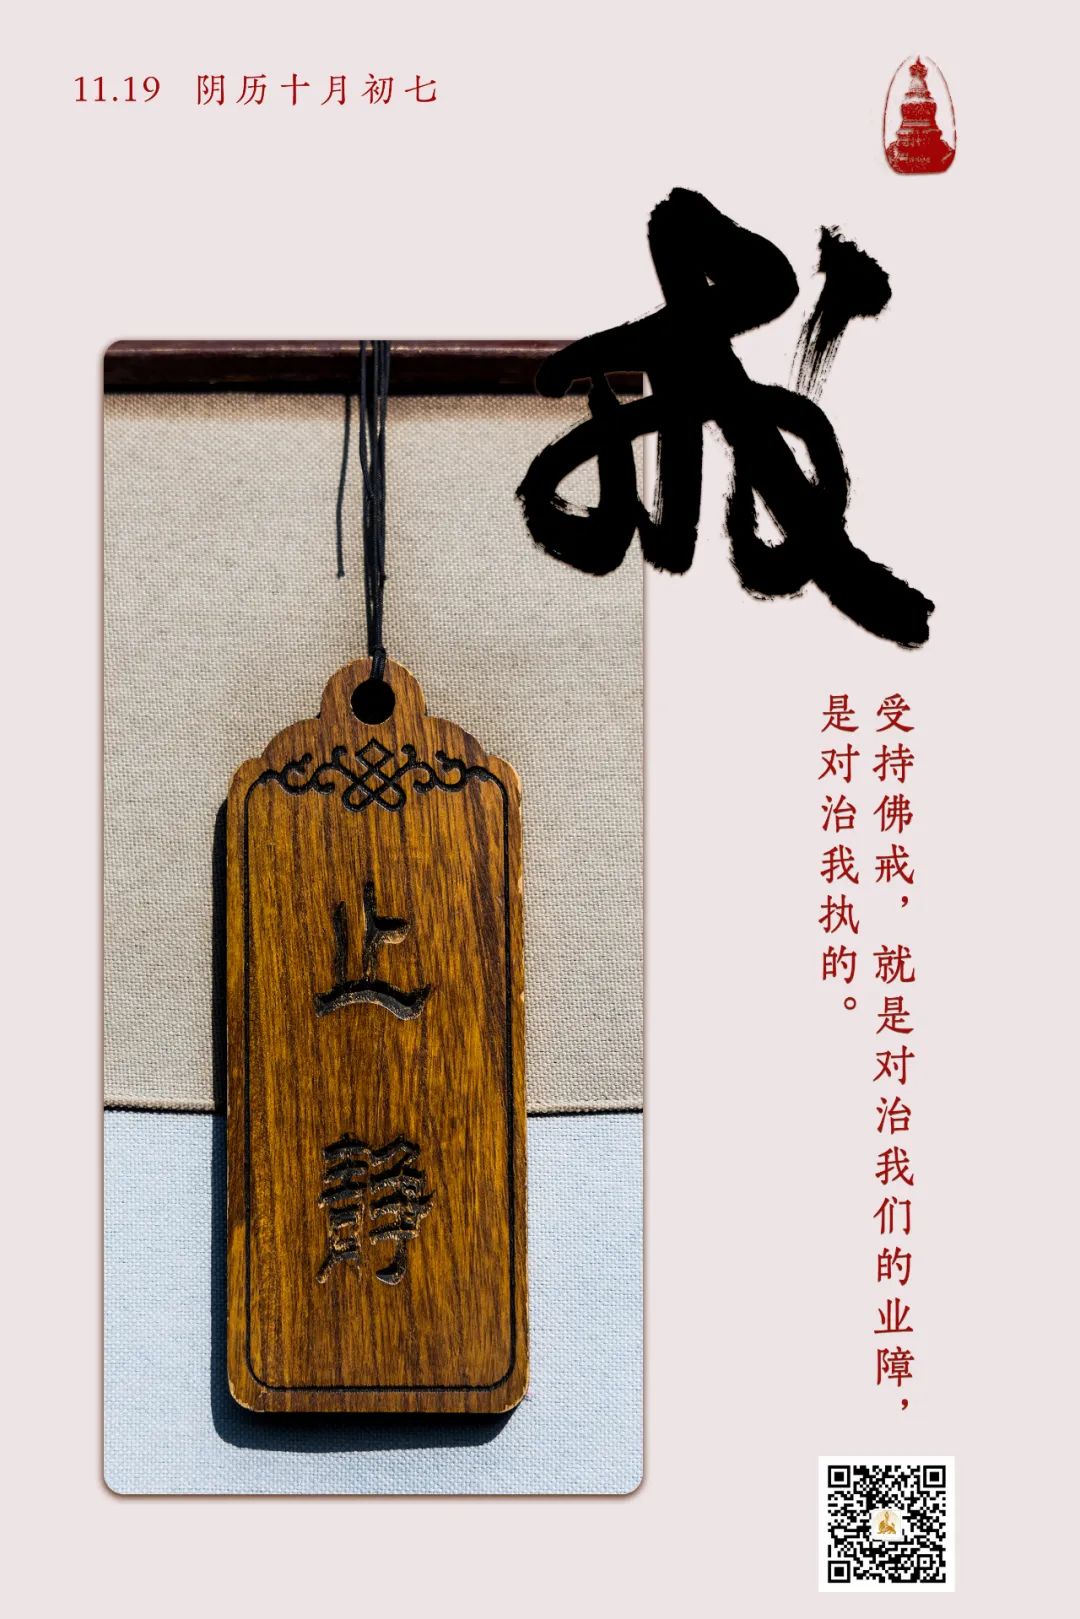 11.19 阴历十月初七
戒
受持佛戒，就是对治我们的业障，
是对治我执的。
止
静